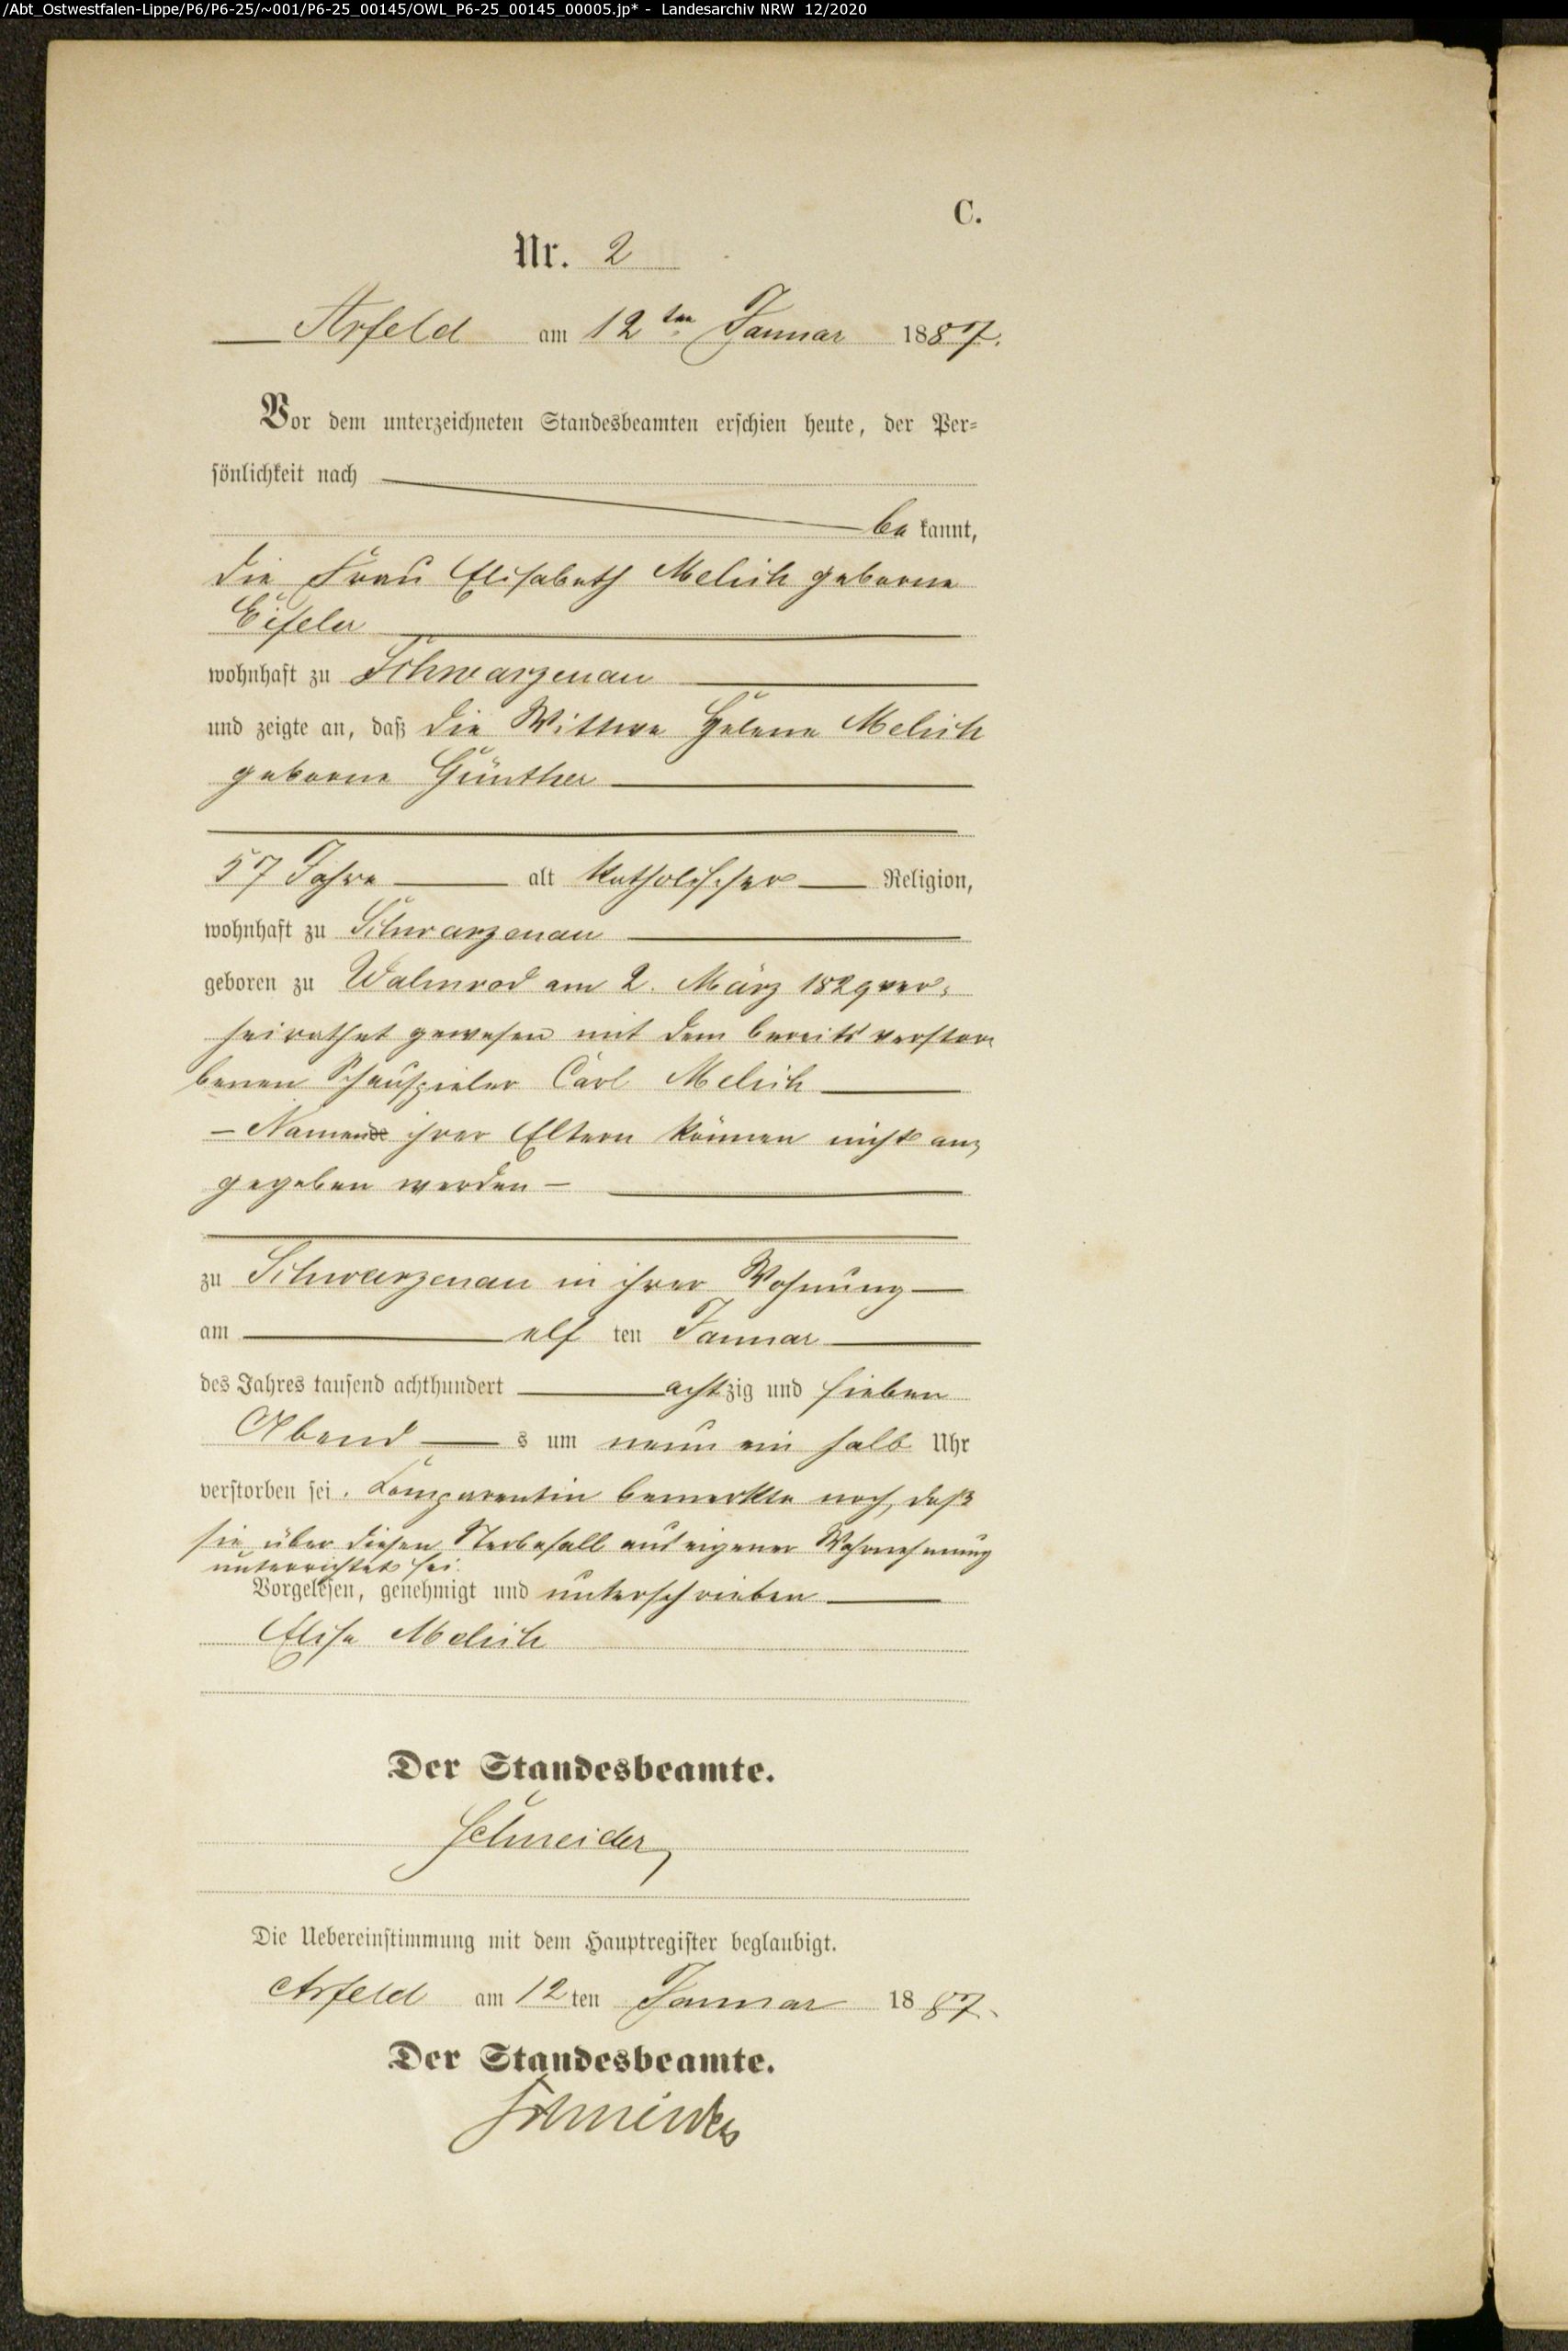 /Abt_Ostwestfalen-Lippe/P6/P6-25/~001/P6-25_00145/OWL_P6-25_00145_00005.jp* - Landesarchiv NRW 12/2020
C.
Nr. 2
Arfeld am 12ten Januar 1887.
Vor dem unterzeichneten Standesbeamten erschien heute, der Per-
sönlichkeit nach
be kannt,
die Frau Elisabeth Melich geborne
Eifeler
wohnhaft zu Schwarzenau
und zeigte an, daß die Wittwe Helene Melich
geborne Günther
57 Jahre alt katholischer Religion,
wohnhaft zu Schwarzenau
geboren zu Walmrod am 2. März 1829 ver-
heirathet gewesen mit dem bereits verstor-
benen Schauspieler Carl Melich
- Namen ihrer Eltern können nicht an-
gegeben werden -
zu Schwarzenau in ihrer Wohnung
am elf ten Januar
des Jahres tausend achthundert achtzig und sieben
Abend s um neun ein halb Uhr
verstorben sei. Comparentin bemerkte noch, daß
sie über diesen Sterbefall aus eigener Wahrnehmung
unterrichtet sei.
Vorgelesen, genehmigt und unterschrieben
Elise Melich
Der Standesbeamte.
Schneider
Die Uebereinstimmung mit dem Hauptregister beglaubigt.
Arfeld am 12 ten Januar 1887.
Der Standesbeamte.
Schneider